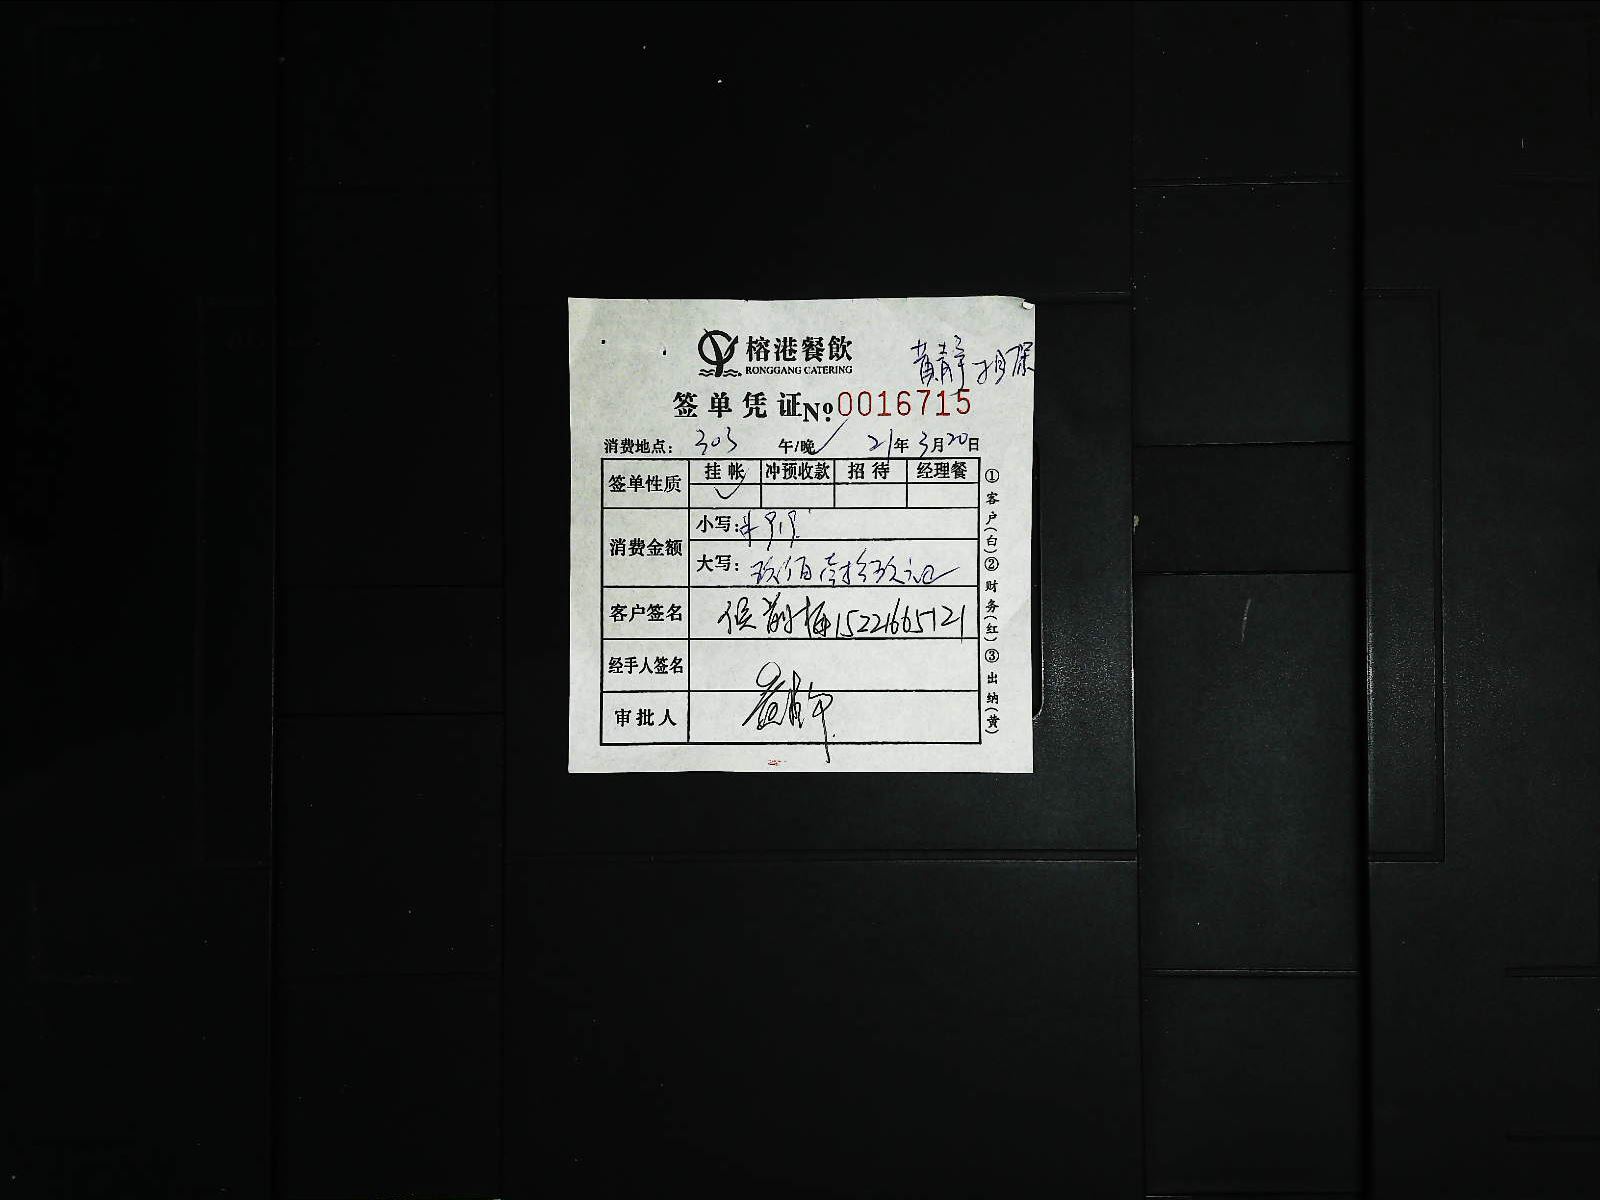 榕港餐飲
RONGGANG CATERING
黄静担保
签单凭证No.0016715
消费地点: 303 午/晚✓ 21年3月20日
签单性质 挂帐 冲预收款 招待 经理餐
✓
消费金额 小写:¥919.
大写: 玖佰壹拾玖元
客户签名 侯 梅15221665121
经手人签名
审批人 黄静
①客户(白)②财务(红)③出纳(黄)